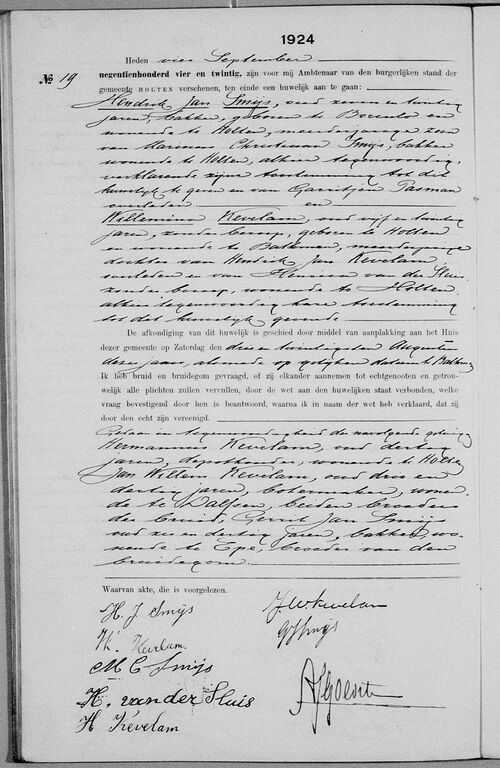 1924
Heden vier September
№ 19
negentienhonderd vier en twintig, zijn voor mij Ambtenaar van den burgerlijken stand der
gemeente HOLTEN verschenen, ten einde een huwelijk aan te gaan:
Hendrik Jan Smijs, oud zeven en twintig
jaren, bakker, geboren te Borculo en
wonende te Holten, meerderjarige zoon
van Marinus Christiaan Smijs, bakker
wonende te Holten, alhier tegenwoordig,
verklarende zijne toestemming tot dit
huwelijk te geven en van Garritjen Tasman
overleden en
Willemina Kevelam, oud vijf en twintig
jaren, zonder beroep, geboren te Holten
en wonende te Bathmen, meerderjarige
dochter van Hendrik Jan Kevelam,
overleden en van Hermina van der Sluis
zonder beroep, wonende te Holten
alhier tegenwoordig hare toestemming
tot dit huwelijk gevende.
De afkondiging van dit huwelijk is geschied door middel van aanplakking aan het Huis
dezer gemeente op Zaterdag den drie en twintigsten Augustus
dezes jaars, alsmede op gelijken datum te Bathmen
Ik heb bruid en bruidegom gevraagd, of zij elkander aannemen tot echtgenooten en getrouwelijk
alle plichten zullen vervullen, door de wet aan den huwelijken staat verbonden, welke
vraag bevestigend door hen is beantwoord, waarna ik in naam der wet heb verklaard, dat zij
door den echt zijn vereenigd.
Gedaan in tegenwoordigheid der navolgende getuigen
Hermannus Kevelam, oud dertig
jaren, depothouder, wonende te Holten
Jan Willem Kevelam, oud drie en
dertig jaren, botermaker, wonende
te Dalfsen, beiden broeders
der bruid, Gerrit Jan Smijs
oud zes en dertig jaren, bakker, wonende
te Epe, broeder van den
bruidegom.
Waarvan akte, die is voorgelezen.
H. J. Smijs
J W Kevelam
W. Kevelam
G J Smijs
M C Smijs
H. van der Sluis
H Kevelam